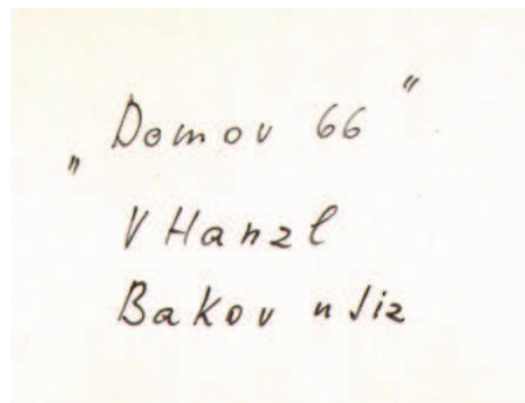 „Domov 66"
V Hanzl
Bakov n Jiz